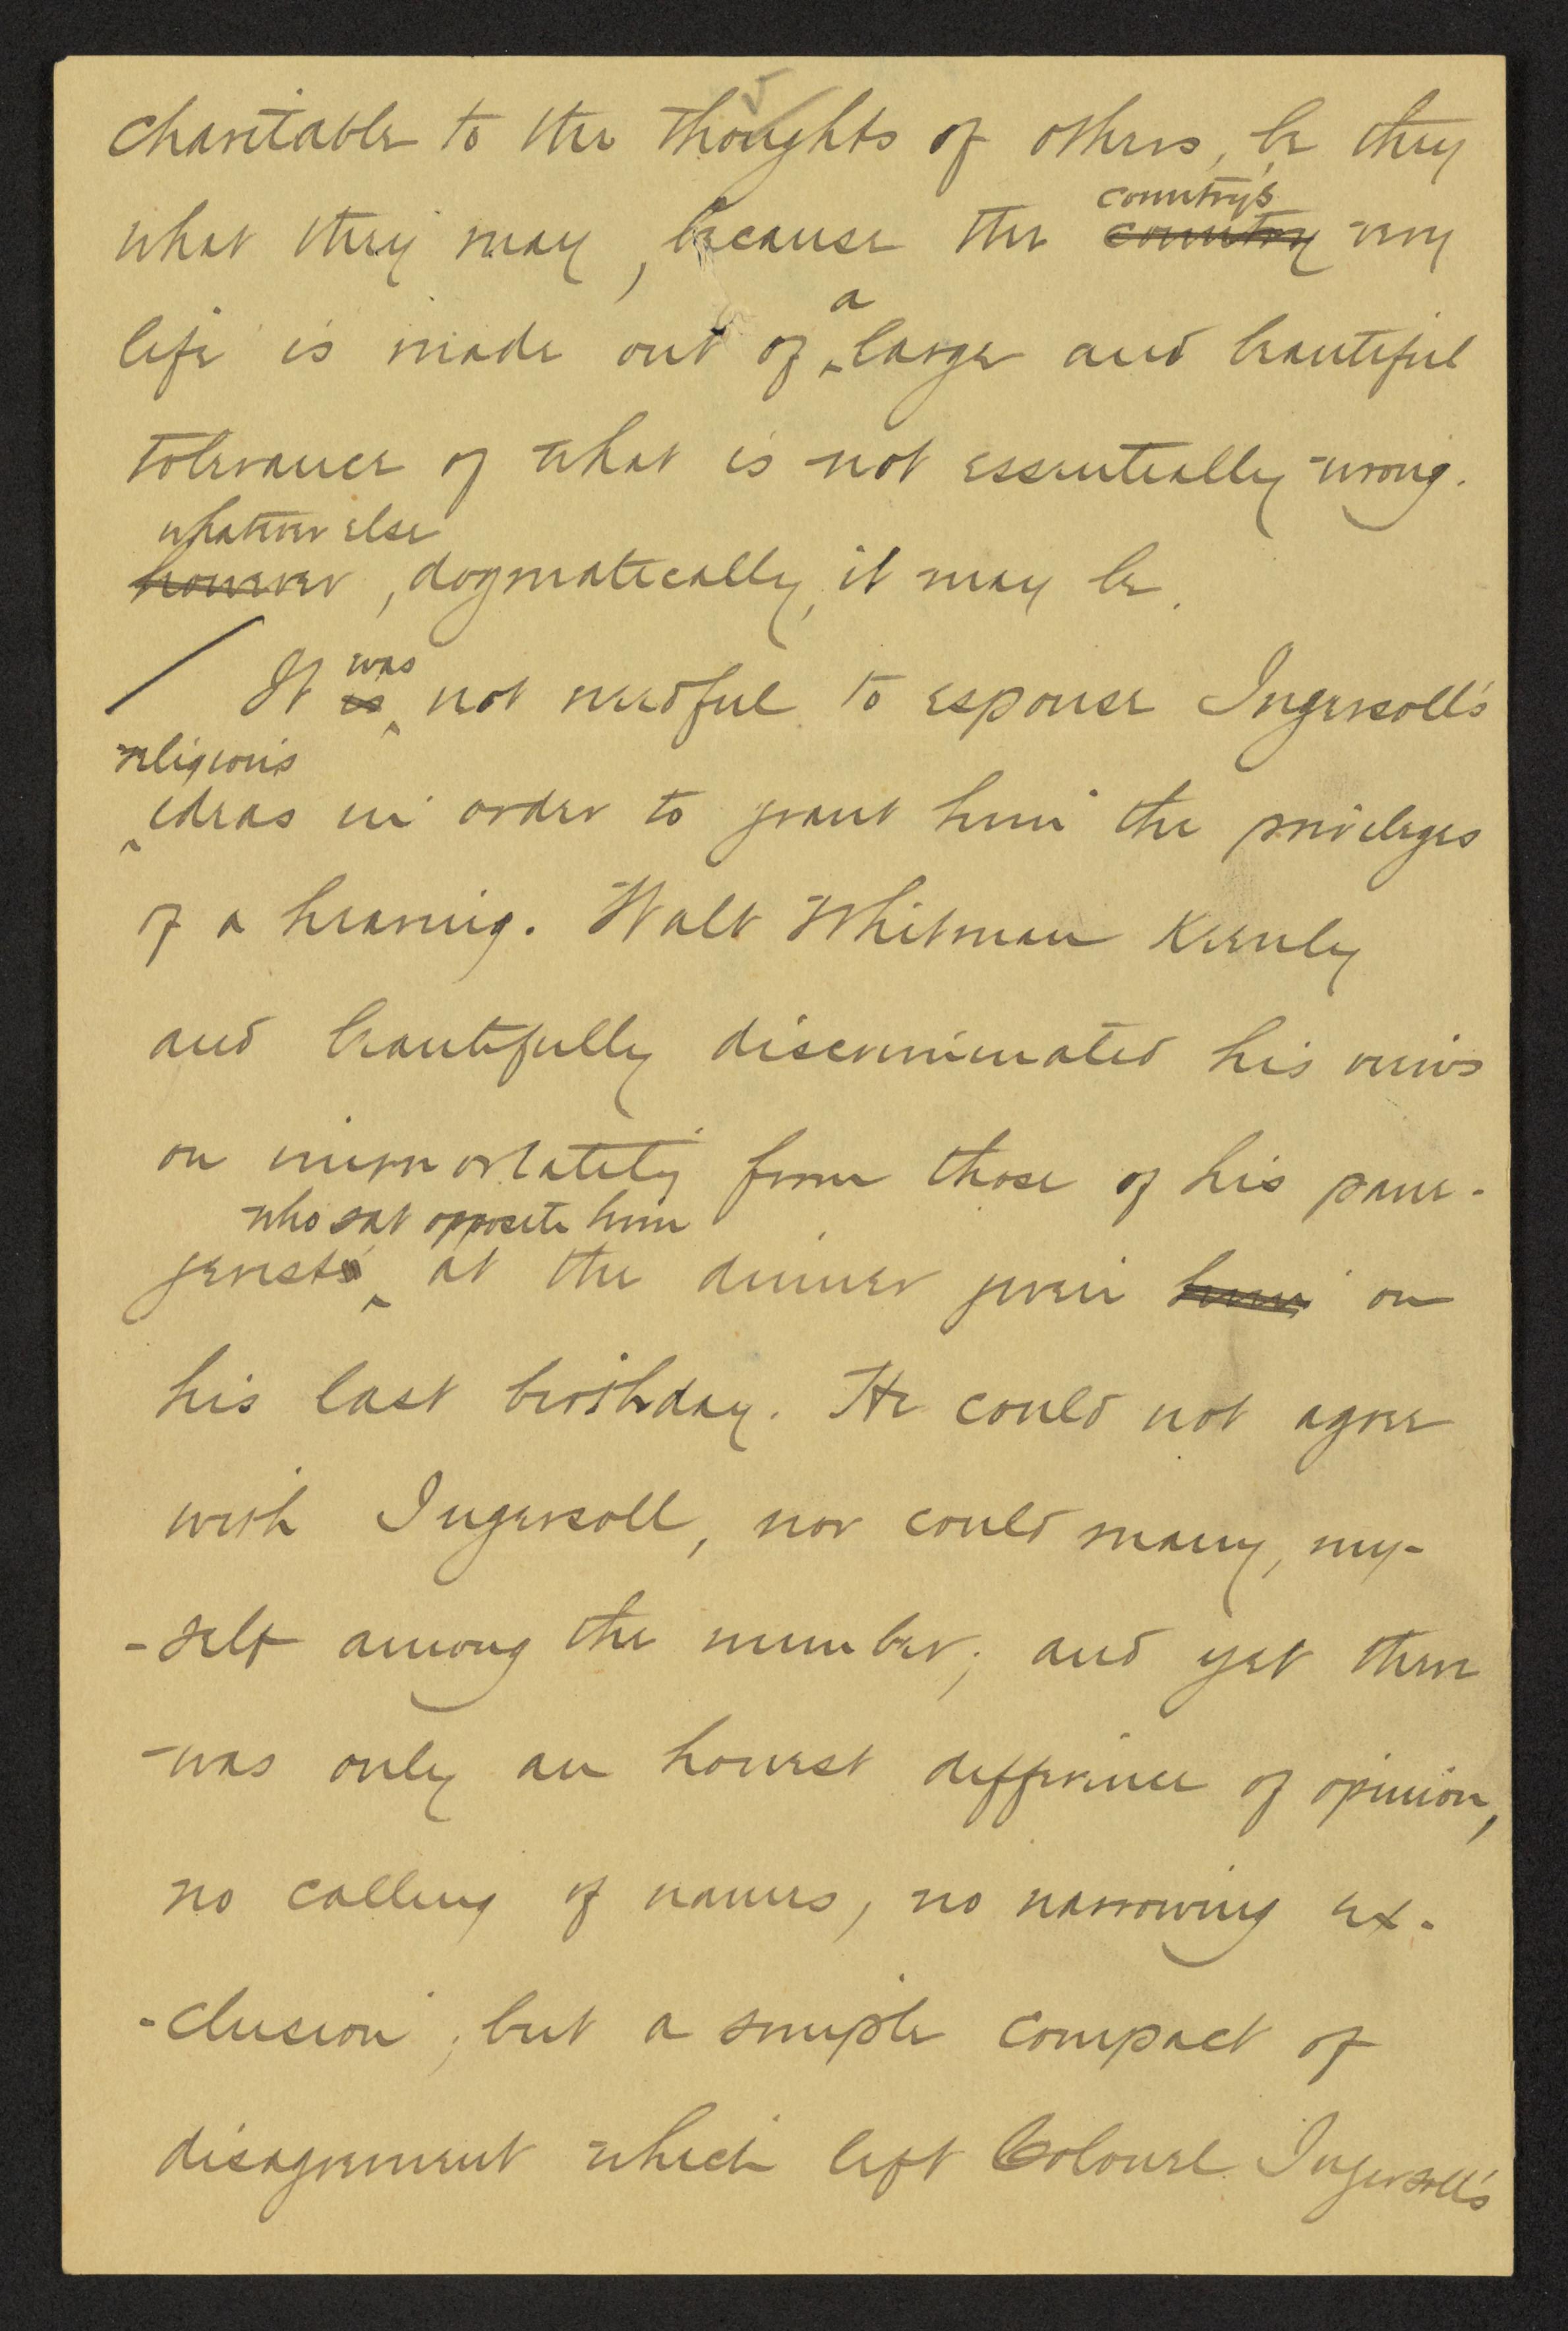 charitable to the thoughts of others, be they
country's
what they may, because the country very
a
life is made out of large and beautiful
tolerance of what is not essentially wrong.
whatever else
however, dogmatically, it may be.
was
It is not needful to espouse Ingersoll's
religious
ideas in order to grant him the privileges
of a hearing. Walt Whitman keenly
and beautifully discriminated his views
on immortality from those of his pane-
who sat opposite him
gerist at the dinner given him on
his last birthday. He could not agree
with Ingersoll, nor could many, my-
-self among the number; and yet there
was only an honest difference of opinion,
no calling of names, no narrowing ex-
-clusion; but a simple compact of
disagreement which left Colonel Ingersoll's